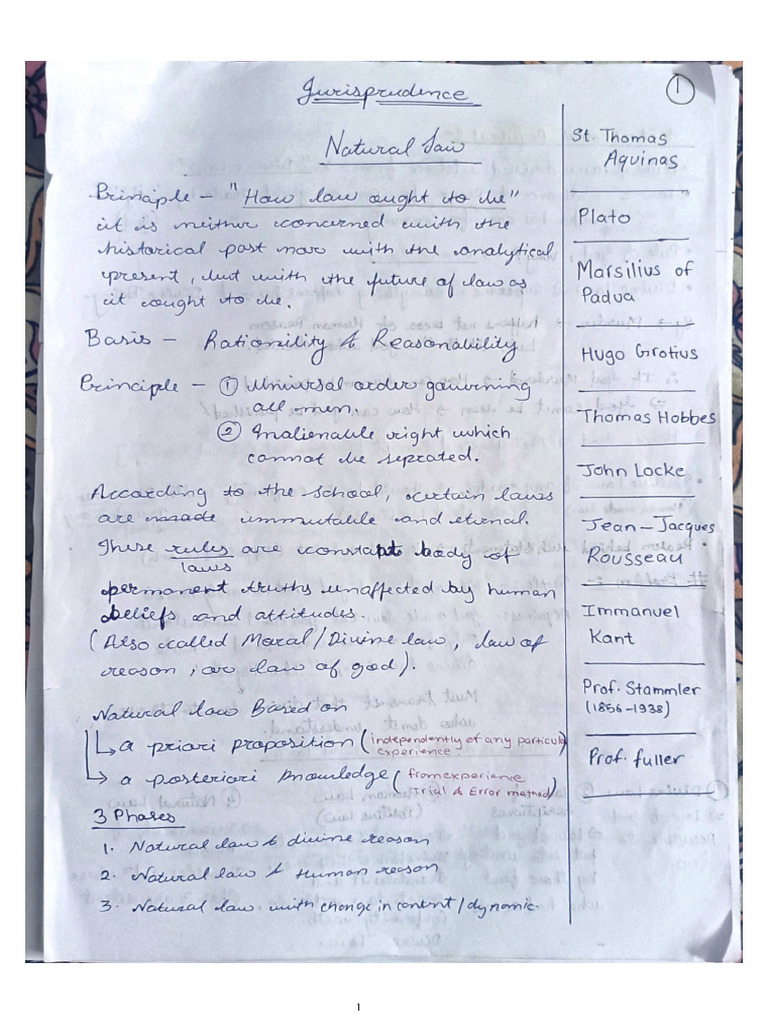 Jurisprudence
1
Natural Law
Principle – "How law ought to be"
it is neither concerned with the
historical past nor with the analytical
present, but with the future of law as
it ought to be.
Basis – Rationility & Reasonability
Principle – 1 Universal order governing
all men.
2 Inalienable right which
cannot be seprated.
According to the school, certain laws
are made immutable and eternal.
These rules are constant body of
laws
permanent truths unaffected by human
beliefs and attitudes.
(Also called Moral / Divine law, law of
reason, or law of god).
Natural law Based on
↳ a priori proposition (independently of any particular
experience.)
↳ a posteriori knowledge (from experience
Trial & Error method)
3 Phases
1. Natural law & divine reason
2. Natural law & Human reason
3. Natural law with change in content / dynamic.
St. Thomas
Aquinas
Plato
Marsilius of
Padua
Hugo Grotius
Thomas Hobbes
John Locke
Jean – Jacques
Rousseau
Immanuel
Kant
Prof. Stammler
(1856-1938)
Prof. fuller
1